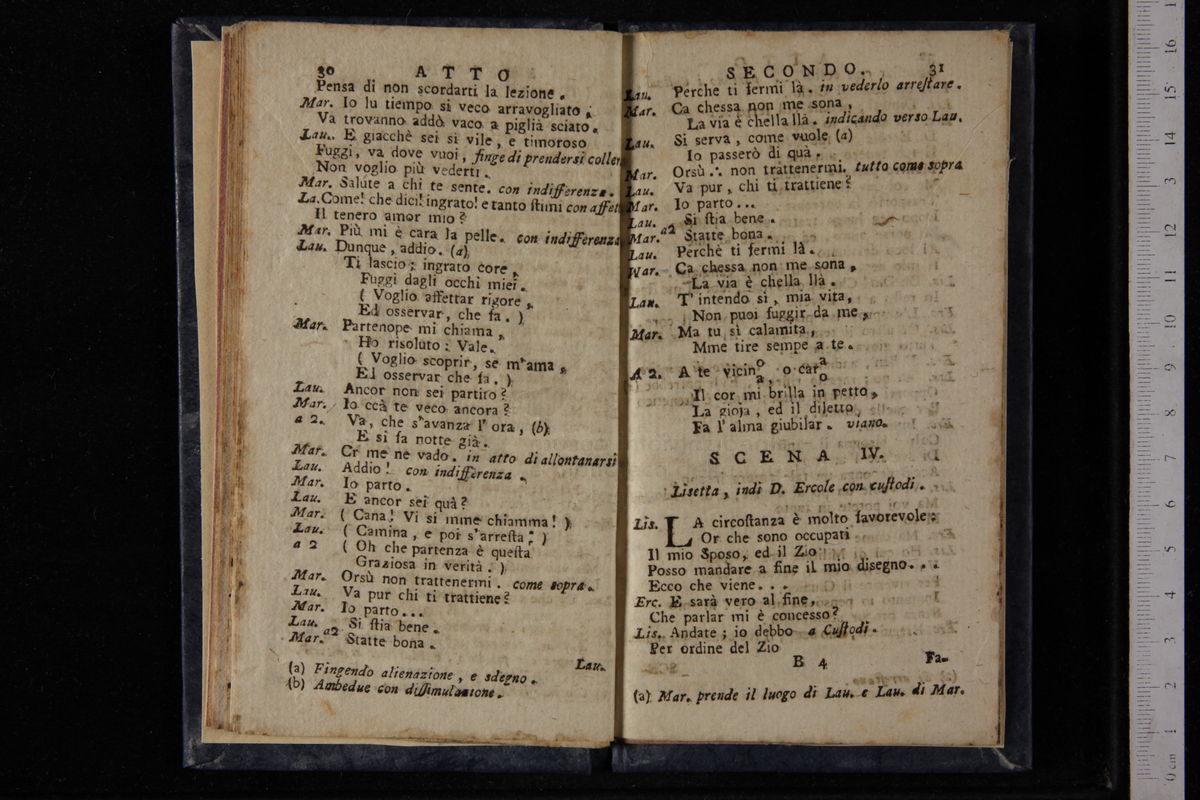 30 ATTO
Pensa di non scordarti la lezione.
Mar. Io lu tiempo si veco arravogliato;
Va trovanno addò vaco a piglià sciato.
Lau. E giacchè sei sì vile, e timoroso
Fuggi, va dove vuoi, finge di prendersi coller
Non voglio più vederti.
Mar. Salute a chi te sente. con indifferenza.
La. Come! che dici! ingrato! e tanto stimi con affet
Il tenero amor mio?
Mar. Più mi è cara la pelle. con indifferenza
Lau. Dunque, addio. (a)
Ti lascio; ingrato core,
Fuggi dagli occhi miei.
( Voglio affettar rigore,
Ed osservar, che fa. )
Mar. Partenope mi chiama,
Ho risoluto: Vale.
( Voglio scoprir, se m'ama,
Ed osservar che fa. )
Lau. Ancor non sei partito?
Mar. Io ccà te veco ancora?
a 2. Va, che s'avanza l'ora, (b)
E si fa notte già.
Mar. Cr me ne vado. in atto di allontanarsi
Lau. Addio! con indifferenza.
Mar. Io parto.
Lau. E ancor sei quà?
Mar. ( Cana! Vi si mme chiamma! )
Lau. ( Camina, e poi s'arresta; )
a 2 ( Oh che partenza è questa
Graziosa in verità. )
Mar. Orsù non trattenermi. come sopra.
Lau. Va pur chi ti trattiene?
Mar. Io parto...
Lau. Si stia bene.
Mar. a2 Statte bona.
Lau.
(a) Fingendo alienazione, e sdegno.
(b) Ambedue con dissimulazione.
SECONDO. 31
Lau. Perchè ti fermi là. in vederlo arrestare.
Mar. Ca chessa non me sona,
La via è chella llà. indicando verso Lau.
Lau. Si serva, come vuole (a)
Io passerò di quà.
Mar. Orsù.. non trattenermi. tutto come sopra
Lau. Va pur, chi ti trattiene?
Mar. Io parto...
Lau. Si stia bene.
Mar. a2 Statte bona.
Lau. Perchè ti fermi là.
Mar. Ca chessa non me sona,
La via è chella llà.
Lau. T'intendo sì, mia vita,
Non puoi fuggir da me,
Mar. Ma tu sì calamita,
Mme tire sempe a te.
A 2. A te vicino/a, o cara/o
Il cor mi brilla in petto,
La gioja, ed il diletto
Fa l'alma giubilar. viano.
SCENA IV.
Lisetta, indi D. Ercole con custodi.
Lis. LA circostanza è molto favorevole:
Or che sono occupati
Il mio Sposo, ed il Zio
Posso mandare a fine il mio disegno...
Ecco che viene...
Erc. E sarà vero al fine,
Che parlar mi è concesso?
Lis. Andate; io debbo a Custodi.
Per ordine del Zio
B 4 Fa-
(a) Mar. prende il luogo di Lau. e Lau. di Mar.